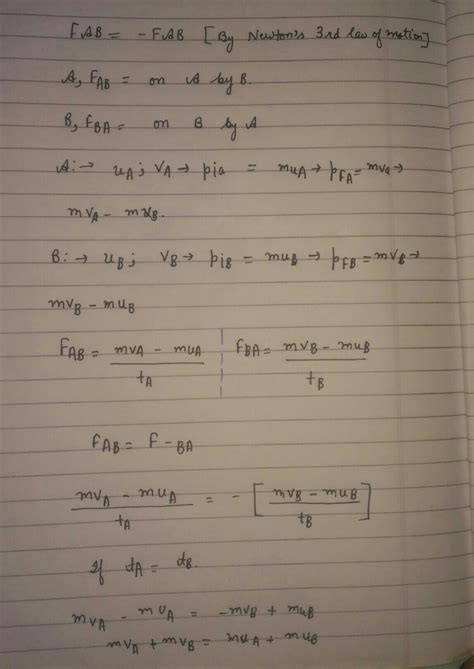 FAB = - FAB [By Newton's 3rd law of motion]
A, FAB = on A by B.
B, FBA = on B by A
A:→ uA; vA → pia = muA → pFA = mvA →
mvA - muB.
B:→ uB; vB → piB = muB → pFB = mvB →
mvB - muB
FAB = mvA - muA / tA | FBA = mvB - muB / tB
FAB = F - BA
mvA - muA / tA = - [mvB - muB / tB]
If dA = dB.
mvA - muA = -mvB + muB
mvA + mvB = muA + muB